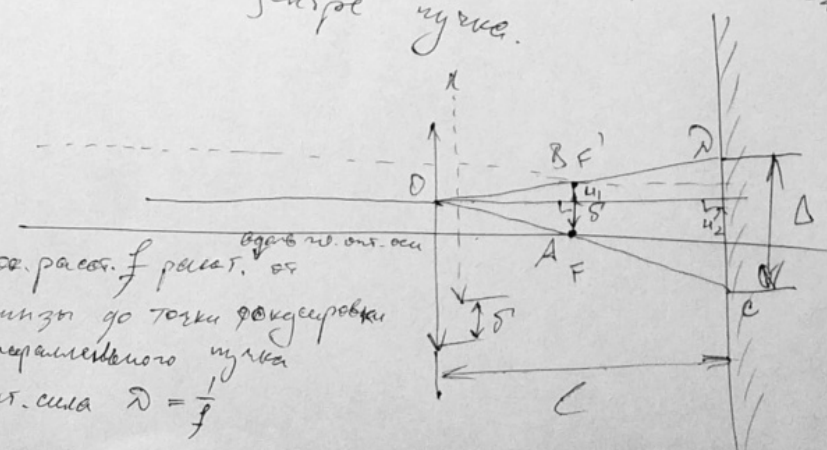 центре пучка.
x
D
B F'
O
H₁
δ
H₂
Δ
вдоль гл. опт. оси
A
F
расст. f расст. от
C
линзы до точки фокусировки
δ
параллельного пучка
L
опт. сила D = 1/f